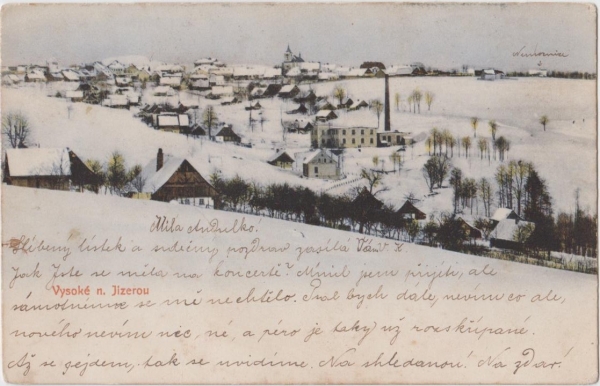 Nemocnice
Milá Andulko.
Slíbený lístek a srdečný pozdrav zasílá Vám
Jak jste se měla na koncertě? Mínil jsem přijít, ale
Vysoké n. Jizerou
samotnému se mě nechtělo. Psal bych dále, nevím co ale,
nového nevím nic, né, a péro je taky už rozskřípané.
Až se sejdem, tak se uvidíme. Na shledanou! Na zdar!